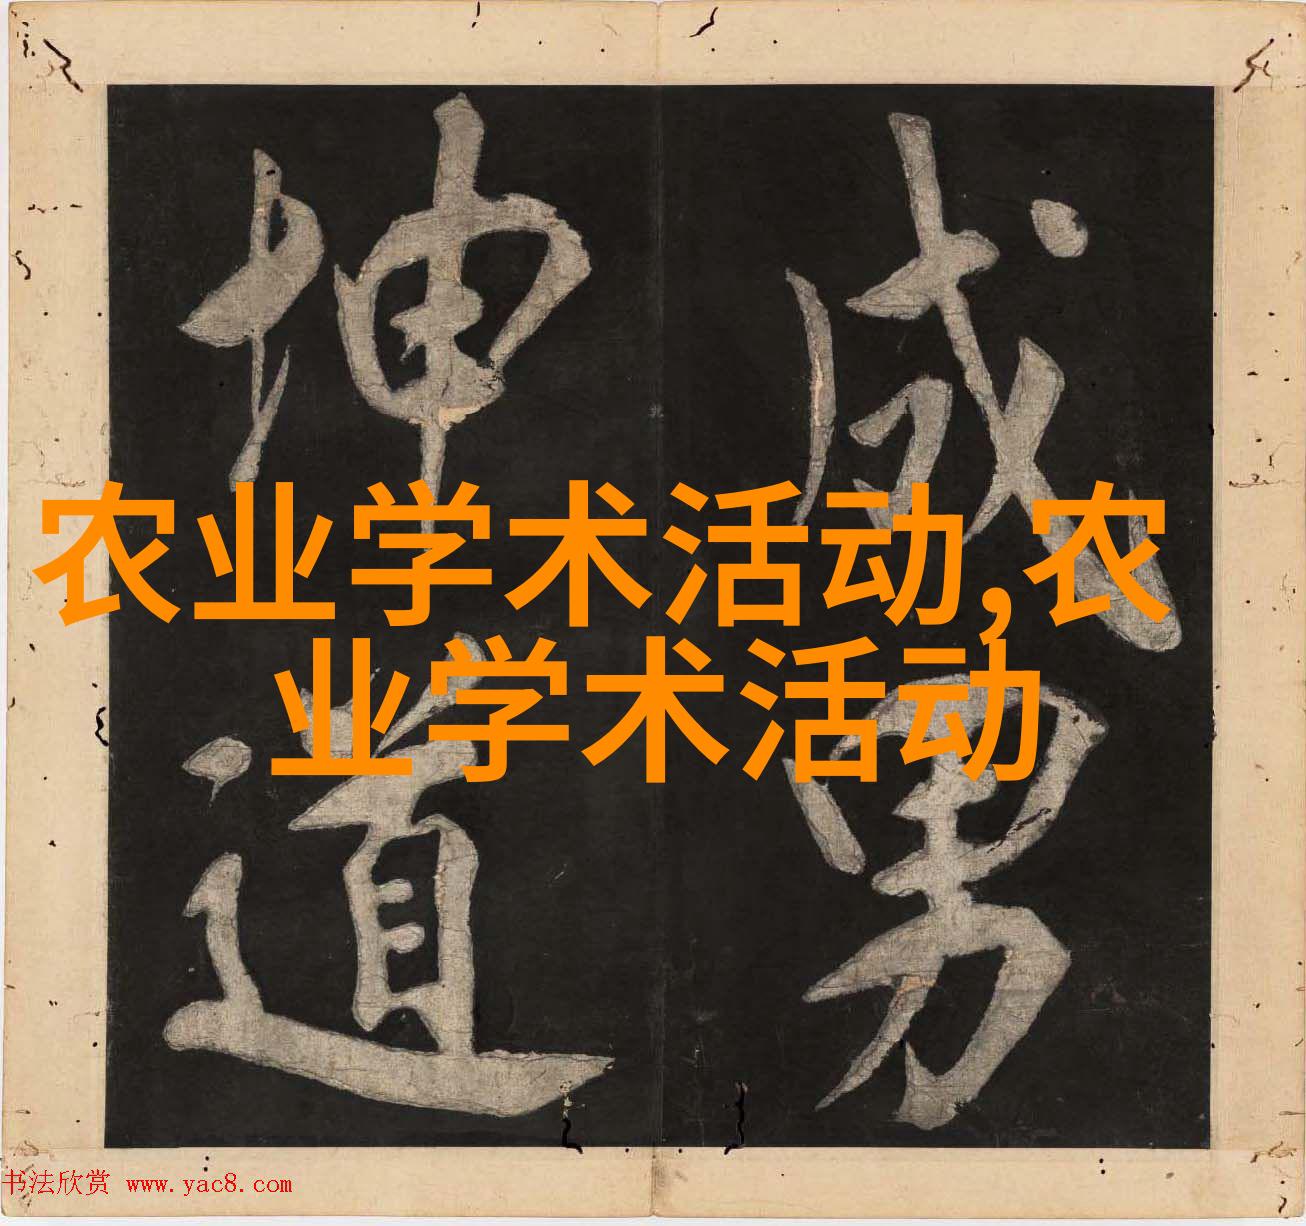 成男
坤道
农业学术活动,农
业学术活动
书法欣赏 www.yac8.com